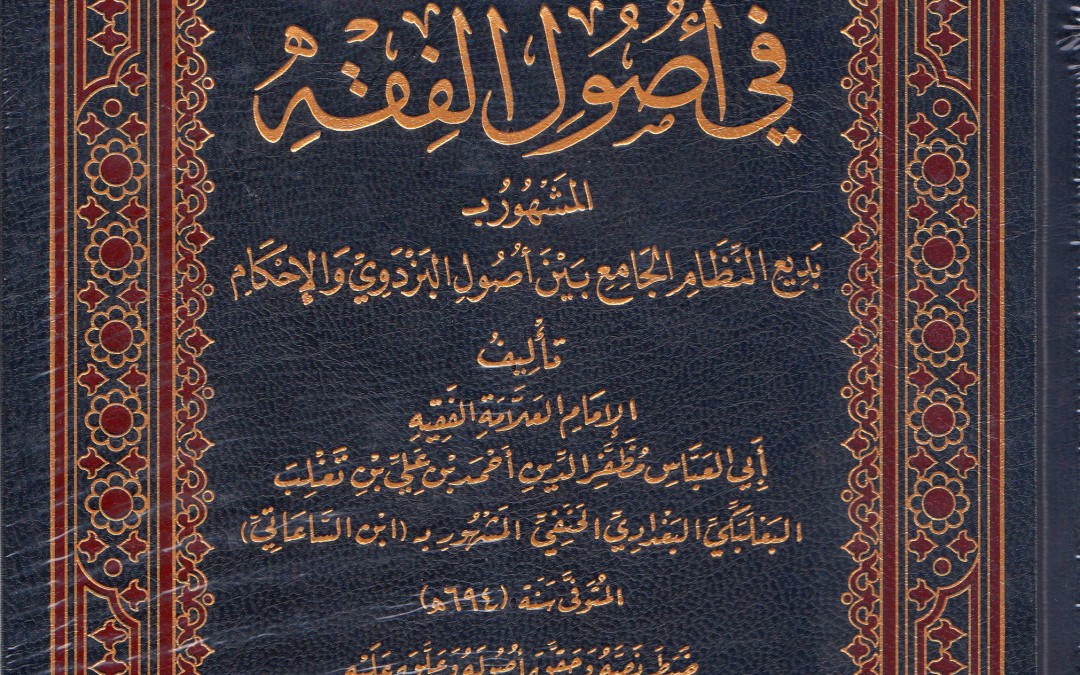 في أُصُولِ الفِقْهِ
المَشْهُورُ بـ
بَدِيعِ النِّظَامِ الجَامِعِ بَيْنَ أُصُولِ البَزْدَوِيِّ وَالإِحْكَامِ
تَأْلِيفُ
الإِمَامِ العَلَّامَةِ الفَقِيهِ
أَبِي العَبَّاسِ مُظَفَّرِ الدِّينِ أَحْمَدَ بْنِ عَلِيِّ بْنِ تَغْلِبَ
البَعْلَبَكِّيِّ البَغْدَادِيِّ الحَنَفِيِّ المَشْهُورِ بِه (ابْنِ السَّاعَاتِيِّ)
المُتَوَفَّى سَنَة (٦٩٤ﻫ)
ضَبَطَ نَصَّهُ وَحَقَّقَ أُصُولَهُ وَعَلَّقَ عَلَيْهِ